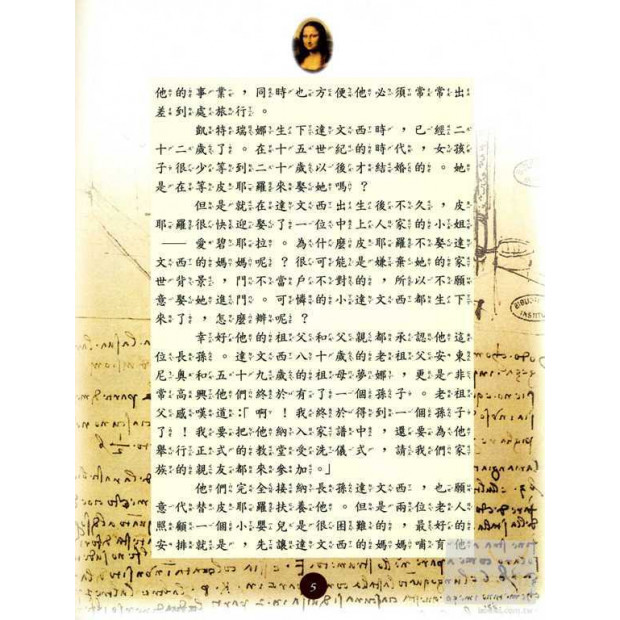 他的事業，同時也方便他必須常常出
差到處旅行。
凱特瑞娜生下達文西時，已經二
十二歲了。在十五世紀的時代，女孩
子很少等到二十歲以後才結婚的。她
是在等皮耶羅來娶她嗎？
但是就在達文西出生後不久，皮
耶羅很快迎娶了一位中上人家的小姐
——愛碧耶拉。為什麼皮耶羅不娶達
文西的媽媽呢？很可能是嫌棄她的家
世背景，門不當戶不對的，所以不願
意娶她進門。可憐的小達文西都生下
來了，怎麼辦呢？
幸好他的祖父和父親都承認他這
位長孫。達文西八十歲的老祖父安東
尼奧和五十九歲的祖母夢娜，更是非
常高興他們終於有了一個孫子。老祖
父感嘆道：「啊！我終於得到一個孫子
了！我要把他納入家譜中，還要為他
舉行正式的教堂受洗儀式，請我們家
族的親友都來參加。」
他們完全接納長孫達文西，也願
意代替皮耶羅扶養他。但是兩位老人
照顧一個小嬰兒是很困難的，最好的
安排就是，先讓達文西的媽媽哺育他
5